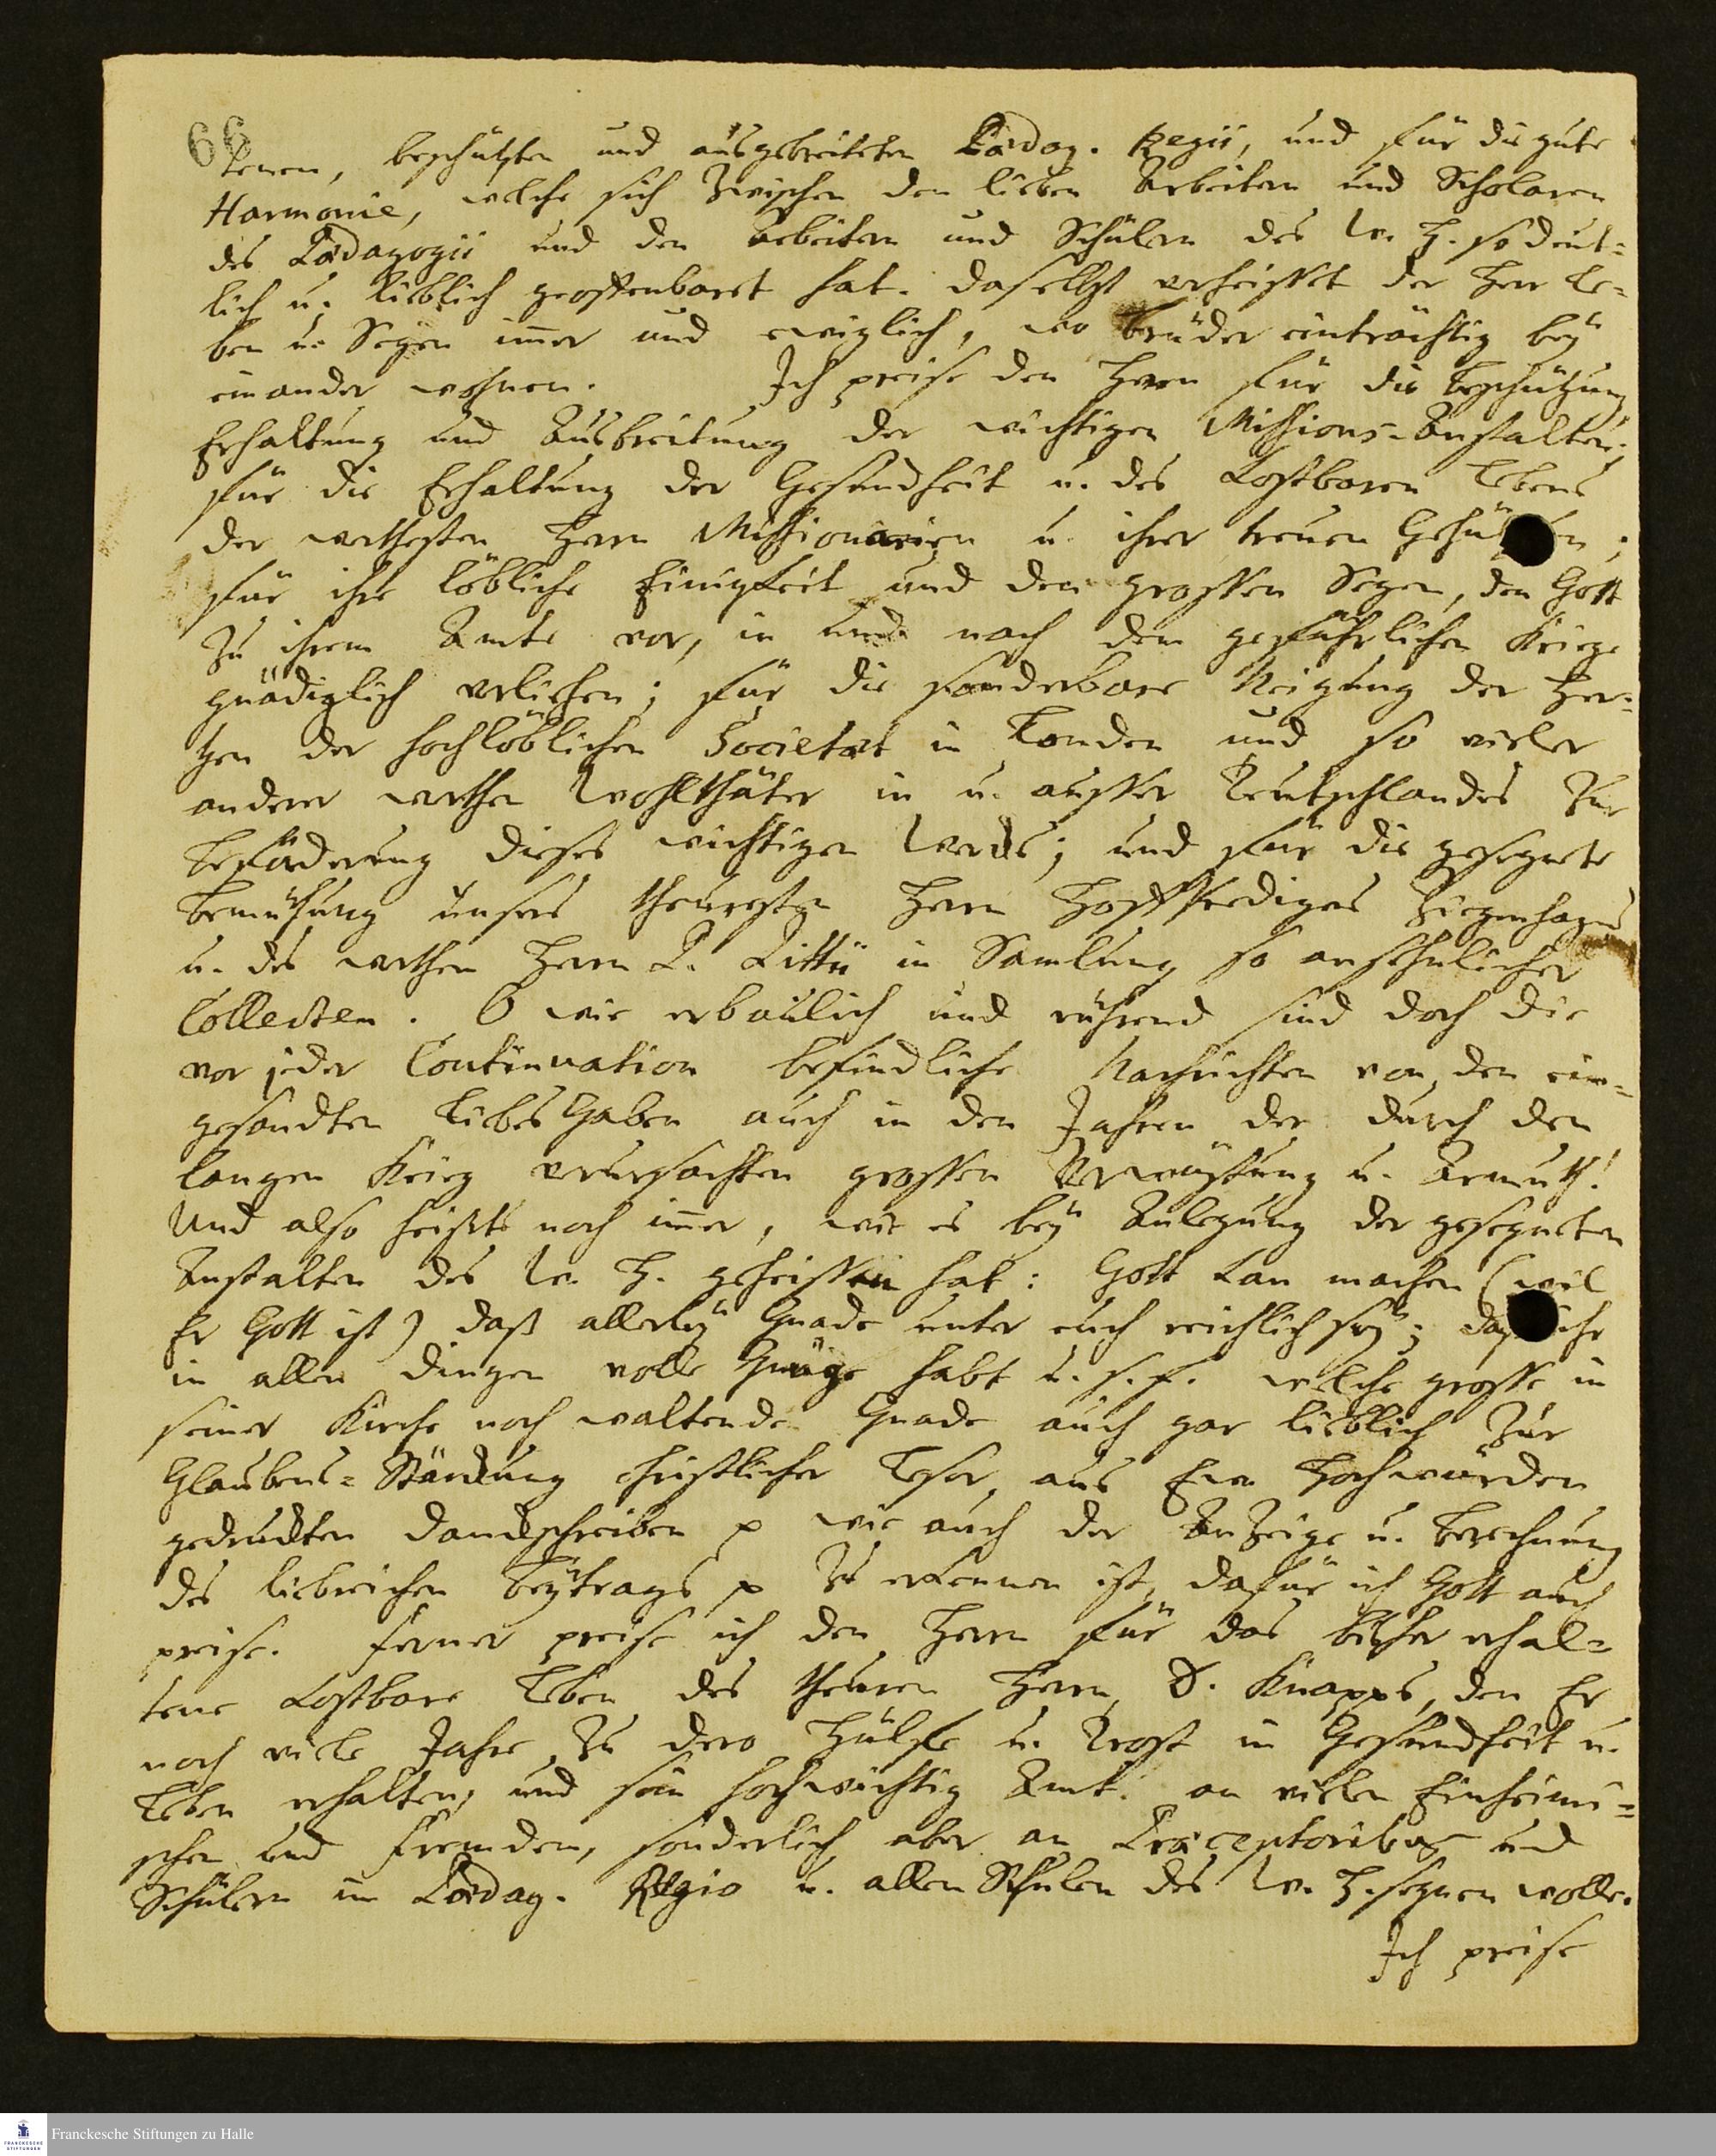 66
tenen, beschützten und ausgebreiteten Pädag. Regii, und für die gute
Harmonie, welche sich zwischen den lieben Arbeitern und Scholaren
des Pädagogii und den Arbeitern und Schülern des W. H. so deut=
lich u. lieblich geoffenbaret hat. Daselbst verheisset der Herr Le=
ben u. Segen immer und ewiglich, wo Brüder einträchtig bey
einander wohnen. Ich preise den Herrn für die Beschützung
Erhaltung und Ausbreitung der wichtigen Missions-Anstalten;
für die Erhaltung der Gesundheit u. des kostbaren Lebens
der werthesten Herrn Missionarien u. ihrer treuen Gehülfen;
für ihre löbliche Einigkeit und den grossen Segen, den Gott
zu ihrem Amte vor, in und nach dem gefährlichen Kriege
gnädiglich verliehen; für die sonderbare Neigung der Her=
tzen der hochlöblichen Societæt in London und so vieler
anderer werthen Wohlthäter in u. ausser Teutschlandes zur
Beförderung dieses wichtigen Wercks; und für die gesegnete
Bemühung unsers theuresten Herrn Hoffpredigers Ziegenhagens
u. des werthen Herrn P. Pittii in Samlung so ansehnlicher
Collecten. O wie erbaulich und rührend sind doch die
vor jeder Continuation befindliche Nachrichten von den ein=
gesandten Liebes Gaben auch in den Jahren der durch den
langen Krieg verursachten grossen Verwüstung u. Armuth!
Und also heißts noch immer, wie es bey Anlegung der gesegneten
Anstalten des W. H. geheissen hat: Gott kan machen (weil
Er Gott ist) daß allerley Gnade unter euch reichlich sey; daß ihr
in allen Dingen volle Gnüge habt u. s. f. welche grosse in
seiner Kirche noch waltende Gnade auch gar lieblich zur
Glaubens=Stärckung christlicher Leser, aus Ew. Hochwürden
gedruckten Danckschreiben p wie auch der Anzeige u. Berechnung
des liebreichen Beytrags p zu erkennen ist, dafür ich Gott auch
preise. Ferner preise ich den Herrn für das bisher erhal=
tene kostbare Leben des theuren Herrn D. Knapps, den Er
noch viele Jahre zu dero Hülfe u. Trost in Gesundheit u.
Leben erhalten, und sein hochwichtig Amt an vielen Einheimi=
schen und Fremden, sonderlich aber an Præceptoribus und
Schülern im Pädag. Regio u. allen Schulen des W. H. segnen wolle.
Ich preise
Franckesche Stiftungen zu Halle
FRANCKESCHE
STIFTUNGEN